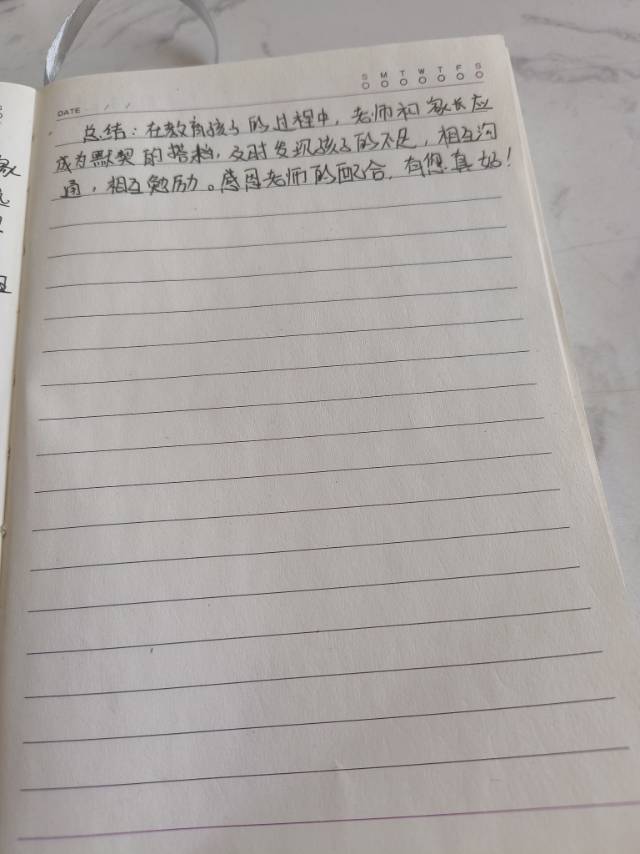 S M T W T F S
DATE / /
总结：在教育孩子的过程中，老师和家长应
成为默契的搭档，及时发现孩子的不足，相互沟
通，相互勉励。感恩老师的配合，有您真好！